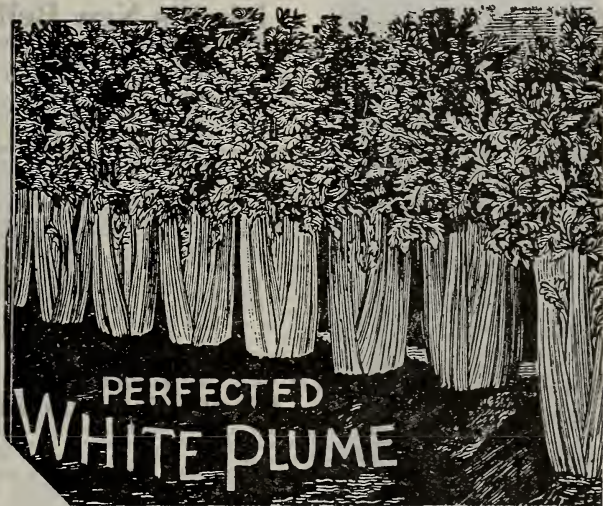 PERFECTED
WHITE PLUME